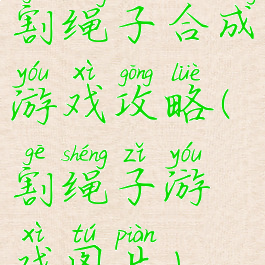 割绳子合成
yóu xì gōng lüè
游戏攻略(
gē shéng zǐ yóu
割绳子游
xì tú piàn
戏图片)